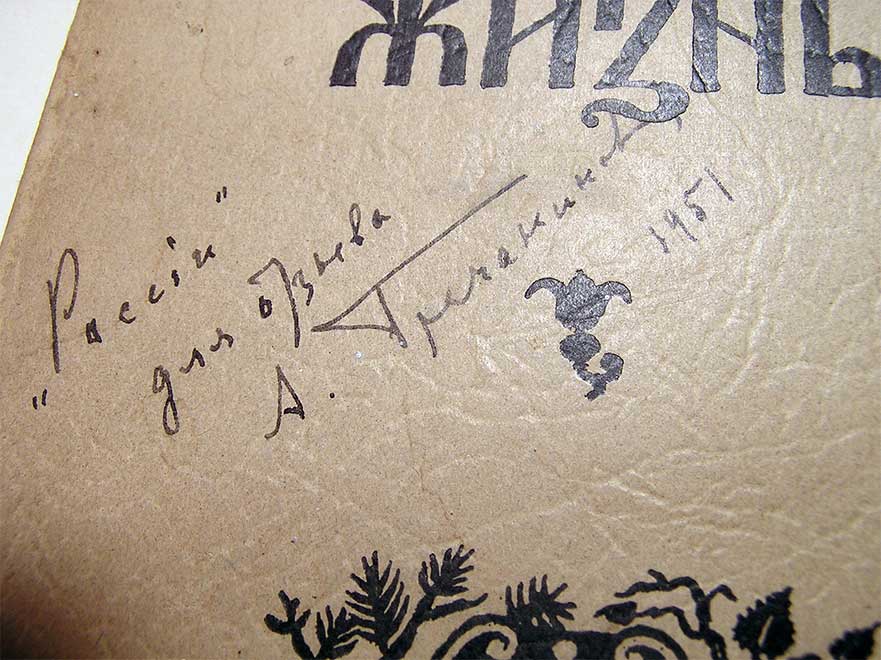 ЖИZНЬ
„Россiи"
для отзыва
А. Гречанинов,
1951